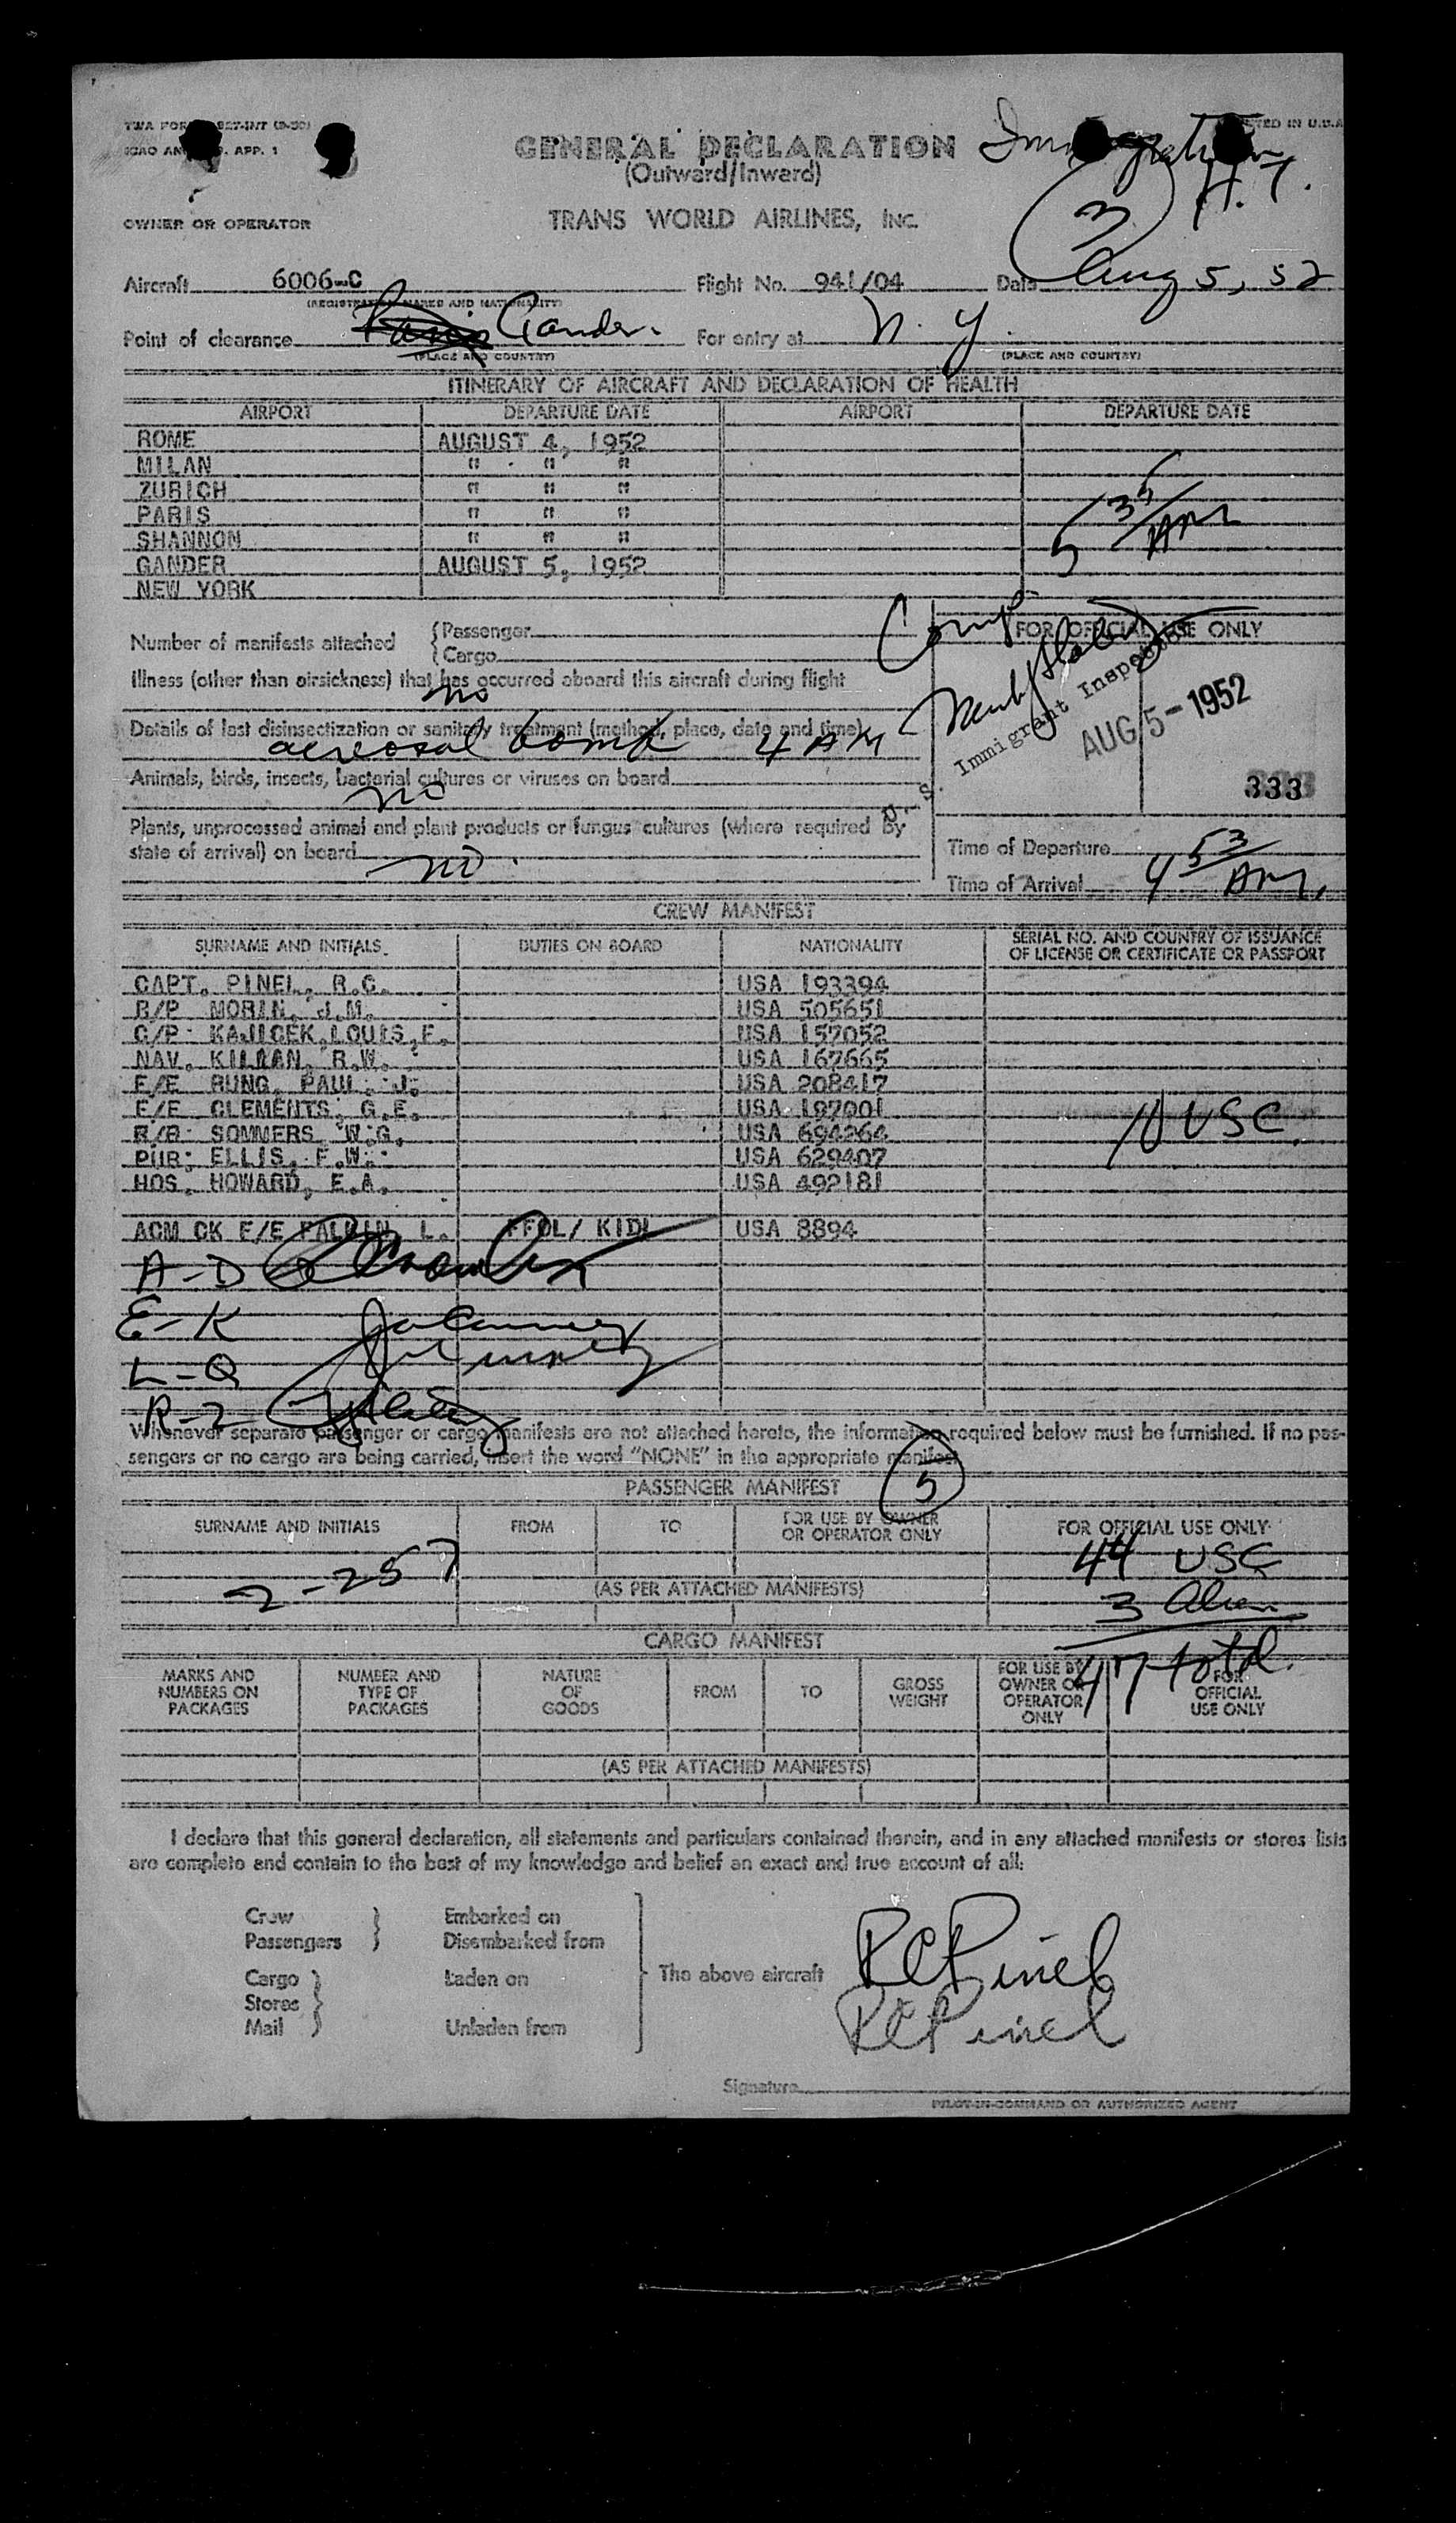 GENERAL DECLARATION
(Outward/Inward)
Immigration
H.T.
3
OWNER OR OPERATOR
TRANS WORLD AIRLINES, INC.
Aircraft 6006-C Flight No. 941/04 Date Aug 5, 52
(REGISTRATION MARKS AND NATIONALITY)
Point of clearance Paris Gander. For entry at N. Y.
(PLACE AND COUNTRY) (PLACE AND COUNTRY)
ITINERARY OF AIRCRAFT AND DECLARATION OF HEALTH
AIRPORT DEPARTURE DATE AIRPORT DEPARTURE DATE
ROME AUGUST 4, 1952
MILAN " " "
ZURICH " " "
PARIS " " "
SHANNON " " "
GANDER AUGUST 5, 1952
NEW YORK
5 35 AM
Number of manifests attached {Passenger
{Cargo
FOR OFFICIAL USE ONLY
Illness (other than airsickness) that has occurred aboard this aircraft during flight
no
U.S. Immigrant Inspector
AUG 5 - 1952
Details of last disinsectization or sanitary treatment (method, place, date and time)
aereosal bomb 4 AM
Animals, birds, insects, bacterial cultures or viruses on board
no
333
Plants, unprocessed animal and plant products or fungus cultures (where required by
state of arrival) on board
no.
Time of Departure
Time of Arrival 4 53 AM.
CREW MANIFEST
SURNAME AND INITIALS DUTIES ON BOARD NATIONALITY SERIAL NO. AND COUNTRY OF ISSUANCE
OF LICENSE OR CERTIFICATE OR PASSPORT
CAPT. PINEL, R.C. USA 193394
R/P MORIN, J.M. USA 505651
C/P KAJICEK,LOUIS,F. USA 157052
NAV. KILMAN, R.W. USA 167665
F/E RUNG, PAUL J. USA 208417
E/E CLEMENTS, G.E. USA 197001
R/O SOMMERS W.G. USA 694264
PUR. ELLIS, F.W. USA 629407
HOS. HOWARD, E.A. USA 492181
10 USC.
ACM CK F/E L. USA 8894
A-D
E-K
L-Q
R-Z
Whenever separate passenger or cargo manifests are not attached hereto, the information required below must be furnished. If no pas-
sengers or no cargo are being carried, insert the word "NONE" in the appropriate manifest.
5
PASSENGER MANIFEST
SURNAME AND INITIALS FROM TO FOR USE BY OWNER
OR OPERATOR ONLY FOR OFFICIAL USE ONLY
2-257
(AS PER ATTACHED MANIFESTS)
44 USC
3 Alien
47 total.
CARGO MANIFEST
MARKS AND
NUMBERS ON
PACKAGES
NUMBER AND
TYPE OF
PACKAGES
NATURE
OF
GOODS
FROM
TO
GROSS
WEIGHT
FOR USE BY
OWNER OR
OPERATOR
ONLY
FOR
OFFICIAL
USE ONLY
(AS PER ATTACHED MANIFESTS)
I declare that this general declaration, all statements and particulars contained therein, and in any attached manifests or stores lists
are complete and contain to the best of my knowledge and belief an exact and true account of all:
Crew
Passengers
Embarked on
Disembarked from
Cargo
Stores
Mail
Laden on
Unladen from
The above aircraft
RC Pinel
RC Pinel
Signature
PILOT-IN-COMMAND OR AUTHORIZED AGENT